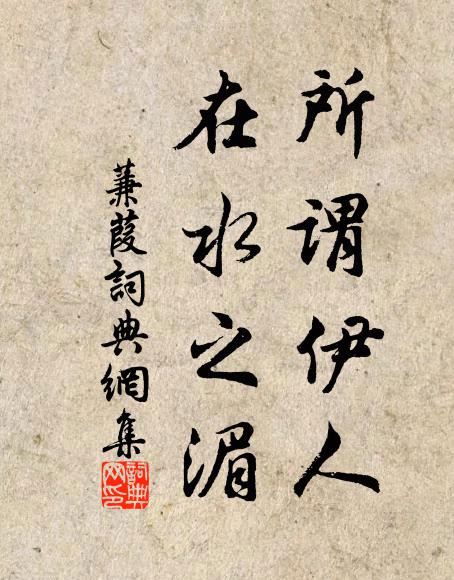 所謂伊人
在水之湄
蒹葭詞典網集
詞典网印